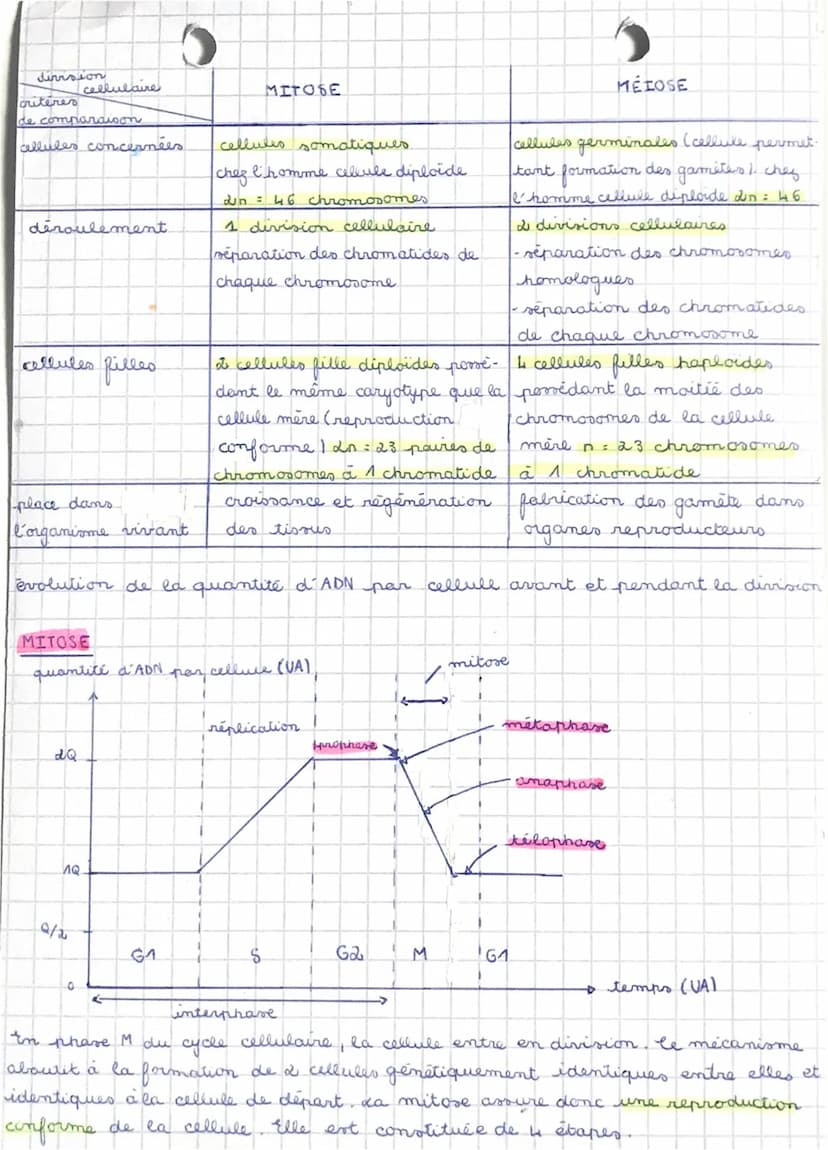 division
cellulaire
MITOSE
MÉIOSE
critères
de comparaison
cellules concernées
cellules somatiques
chez l'homme cellule diploïde
2n = 46 chromosomes
cellules germinales (cellule permet-
tant formation des gamètes). chez
l'homme cellule diploïde 2n = 46
déroulement
1 division cellulaire
séparation des chromatides de
chaque chromosome
2 divisions cellulaires
- séparation des chromosomes
homologues
- séparation des chromatides
de chaque chromosome
cellules filles
2 cellules fille diploïdes possé-
dant le même caryotype que la
cellule mère (reproduction
conforme) 2n = 23 paires de
chromosomes à 1 chromatide
4 cellules filles haploïdes
possédant la moitié des
chromosomes de la cellule
mère n = 23 chromosomes
à 1 chromatide
place dans
l'organisme vivant
croissance et régénération
des tissus
fabrication des gamète dans
organes reproducteurs
évolution de la quantité d'ADN par cellule avant et pendant la division
MITOSE
quantité d'ADN par cellule (UA)
mitose
réplication
prophase
métaphase
2Q
anaphase
télophase
1Q
Q/2
G1 S G2 M G1
0
temps (UA)
interphase
En phase M du cycle cellulaire, la cellule entre en division. Ce mécanisme
aboutit à la formation de 2 cellules génétiquement identiques entre elles et
identiques à la cellule de départ. La mitose assure donc une reproduction
conforme de la cellule. Elle est constituée de 4 étapes.